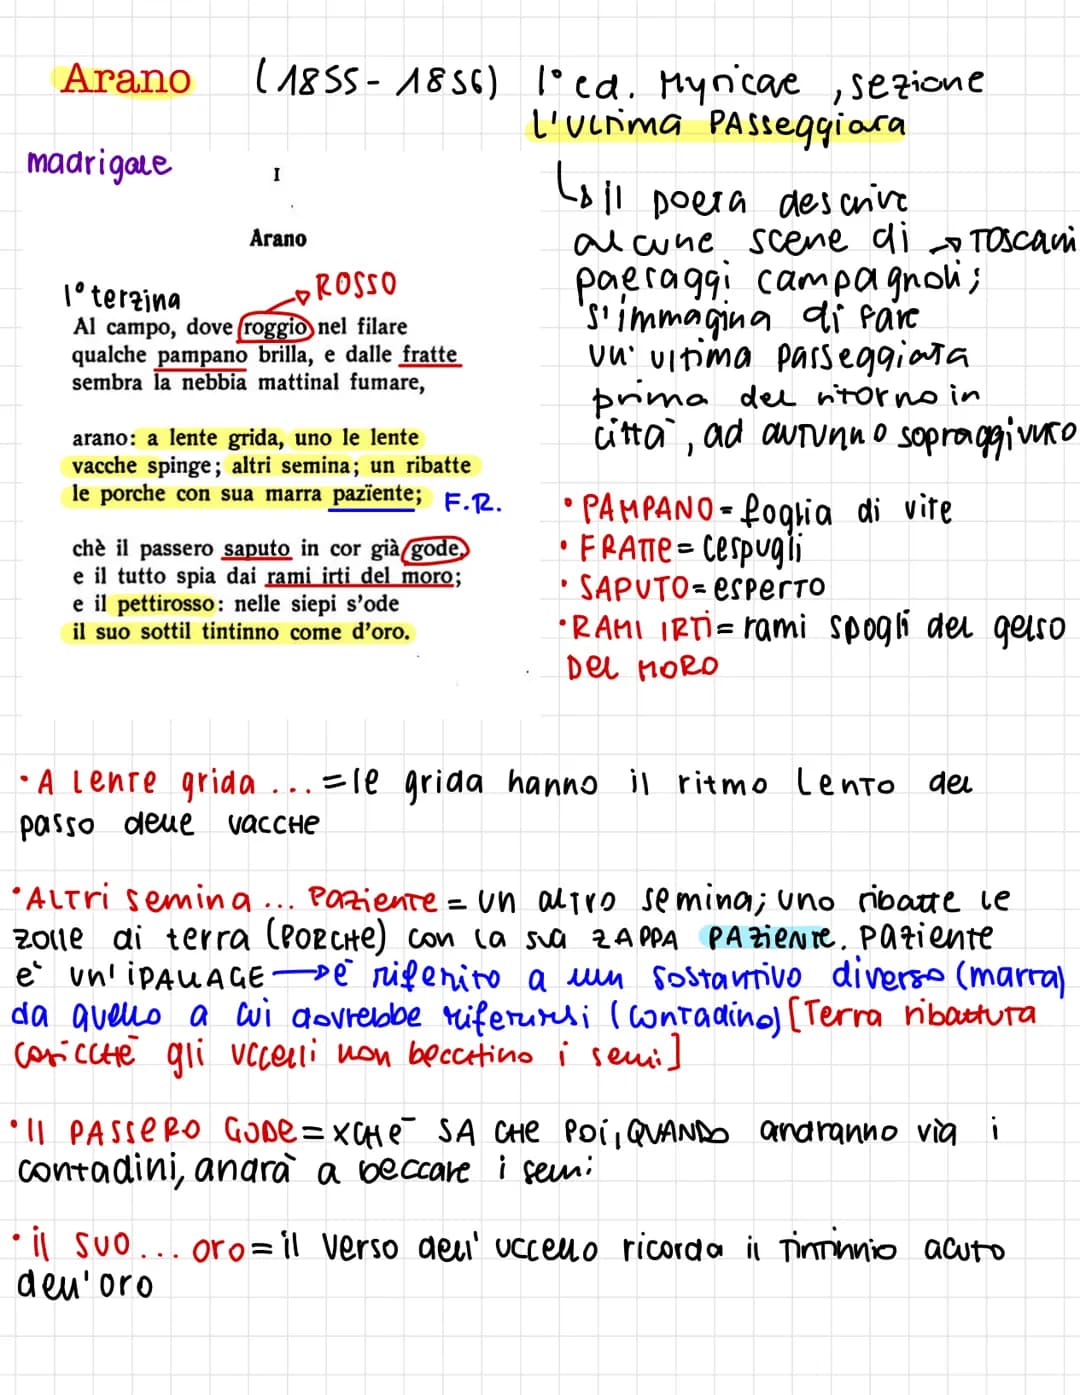 Arano (1855-1856) 1° ed. Myricae, sezione
L'ultima PASSeggiata
madrigale
I
Arano
↳ il poeta descrive
alcune scene di → TOSCANI
paesaggi campagnoli;
s'immagina di fare
un' ultima passeggiata
prima del ritorno in
città, ad autunno sopraggiunto
1° terzina
→ ROSSO
Al campo, dove roggio nel filare
qualche pampano brilla, e dalle fratte
sembra la nebbia mattinal fumare,
arano: a lente grida, uno le lente
vacche spinge; altri semina; un ribatte
le porche con sua marra pazïente; F.R.
chè il passero saputo in cor già gode,
e il tutto spia dai rami irti del moro;
e il pettirosso: nelle siepi s'ode
il suo sottil tintinno come d'oro.
• PAMPANO = foglia di vite
• FRATTE = cespugli
• SAPUTO = esperto
• RAMI IRTI = rami spogli del gelso
Del MORO
• A lente grida ... = le grida hanno il ritmo lento del
passo delle vacche
• ALTri semina ... Paziente = un altro semina; uno ribatte le
zolle di terra (PORCHE) con la sua ZAPPA PAZIENTE. Paziente
è un' iPALLAGE → è riferito a un sostantivo diverso (marra)
da quello a cui dovrebbe riferirsi (contadino) [Terra ribattuta
cosicché gli uccelli non becchino i semi]
• Il PASSERO GODE = XCHé SA CHE Poi, QUANDO andranno via i
contadini, andrà a beccare i semi
• il suo ... oro = il verso dell' uccello ricorda il tintinnio acuto
dell'oro